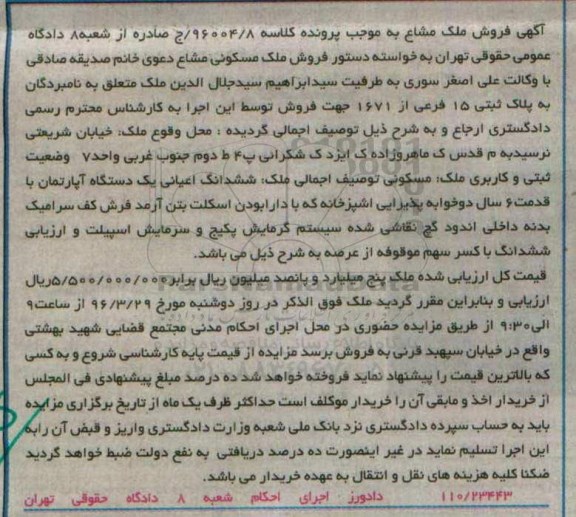 آگهی فروش ملک مشاع به موجب پرونده کلاسه ۹۶۰۰۴/۸/ج صادره از شعبه۸ دادگاه
عمومی حقوقی تهران به خواسته دستور فروش ملک مسکونی مشاع دعوی خانم صدیقه صادقی
با وکالت علی اصغر سوری به طرفیت سیدابراهیم سیدجلال الدین ملک متعلق به نامبردگان
به پلاک ثبتی ۱۵ فرعی از ۱۶۷۱ جهت فروش توسط این اجرا به کارشناس محترم رسمی
دادگستری ارجاع و به شرح ذیل توصیف اجمالی گردیده : محل وقوع ملک: خیابان شریعتی
نرسیدبه م قدس ک ماهروزاده ک ایزد ک شکرانی پ۴ ط دوم جنوب غربی واحد۷ وضعیت
ثبتی و کاربری ملک: مسکونی توصیف اجمالی ملک: ششدانگ اعیانی یک دستگاه آپارتمان با
قدمت۶ سال دوخوابه پذیرایی اشپزخانه که با دارابودن اسکلت بتن آرمد فرش کف سرامیک
بدنه داخلی اندود گچ نقاشی شده سیستم گرمایش پکیج و سرمایش اسپیلت و ارزیابی
ششدانگ با کسر سهم موقوفه از عرصه به شرح ذیل می باشد.
قیمت کل ارزیابی شده ملک پنج میلیارد و پانصد میلیون ریال برابر ۵/۵۰۰/۰۰۰/۰۰۰ریال
ارزیابی و بنابراین مقرر گردید ملک فوق الذکر در روز دوشنبه مورخ ۹۶/۳/۲۹ از ساعت۹
الی۹:۳۰ از طریق مزایده حضوری در محل اجرای احکام مدنی مجتمع قضایی شهید بهشتی
واقع در خیابان سپهبد قرنی به فروش برسد مزایده از قیمت پایه کارشناسی شروع و به کسی
که بالاترین قیمت را پیشنهاد نماید فروخته خواهد شد ده درصد مبلغ پیشنهادی فی المجلس
از خریدار اخذ و مابقی آن را خریدار موکلف است حداکثر ظرف یک ماه از تاریخ برگزاری مزایده
باید به حساب سپرده دادگستری نزد بانک ملی شعبه وزارت دادگستری واریز و قبض آن رابه
این اجرا تسلیم نماید در غیر اینصورت ده درصد دریافتی به نفع دولت ضبط خواهد گردید
ضکنا کلیه هزینه های نقل و انتقال به عهده خریدار می باشد.
۱۱۰/۲۳۴۴۳ دادورز اجرای احکام شعبه ۸ دادگاه حقوقی تهران